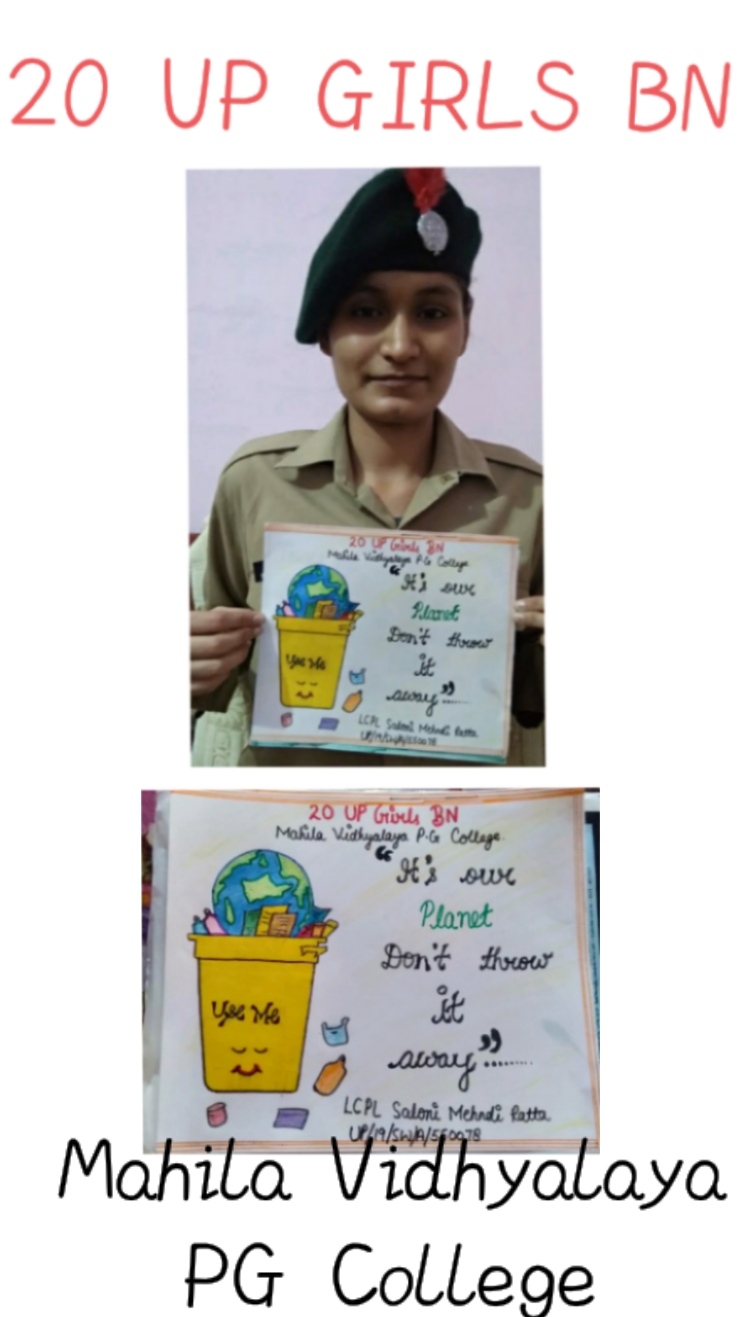 20 UP GIRLS BN
20 UP Girls BN
Mahila Vidhyalaya P.G College
"It's our
Planet
Don't throw
it
away"......
Use Me
LCPL Saloni Mehndi Ratta
UP/19/SW/A/550078
20 UP Girls BN
Mahila Vidhyalaya P.G College.
"It's our
Planet
Don't throw
it
away"........
Use Me
LCPL Saloni Mehndi Ratta
UP/19/SW/A/550078
Mahila Vidhyalaya
PG College